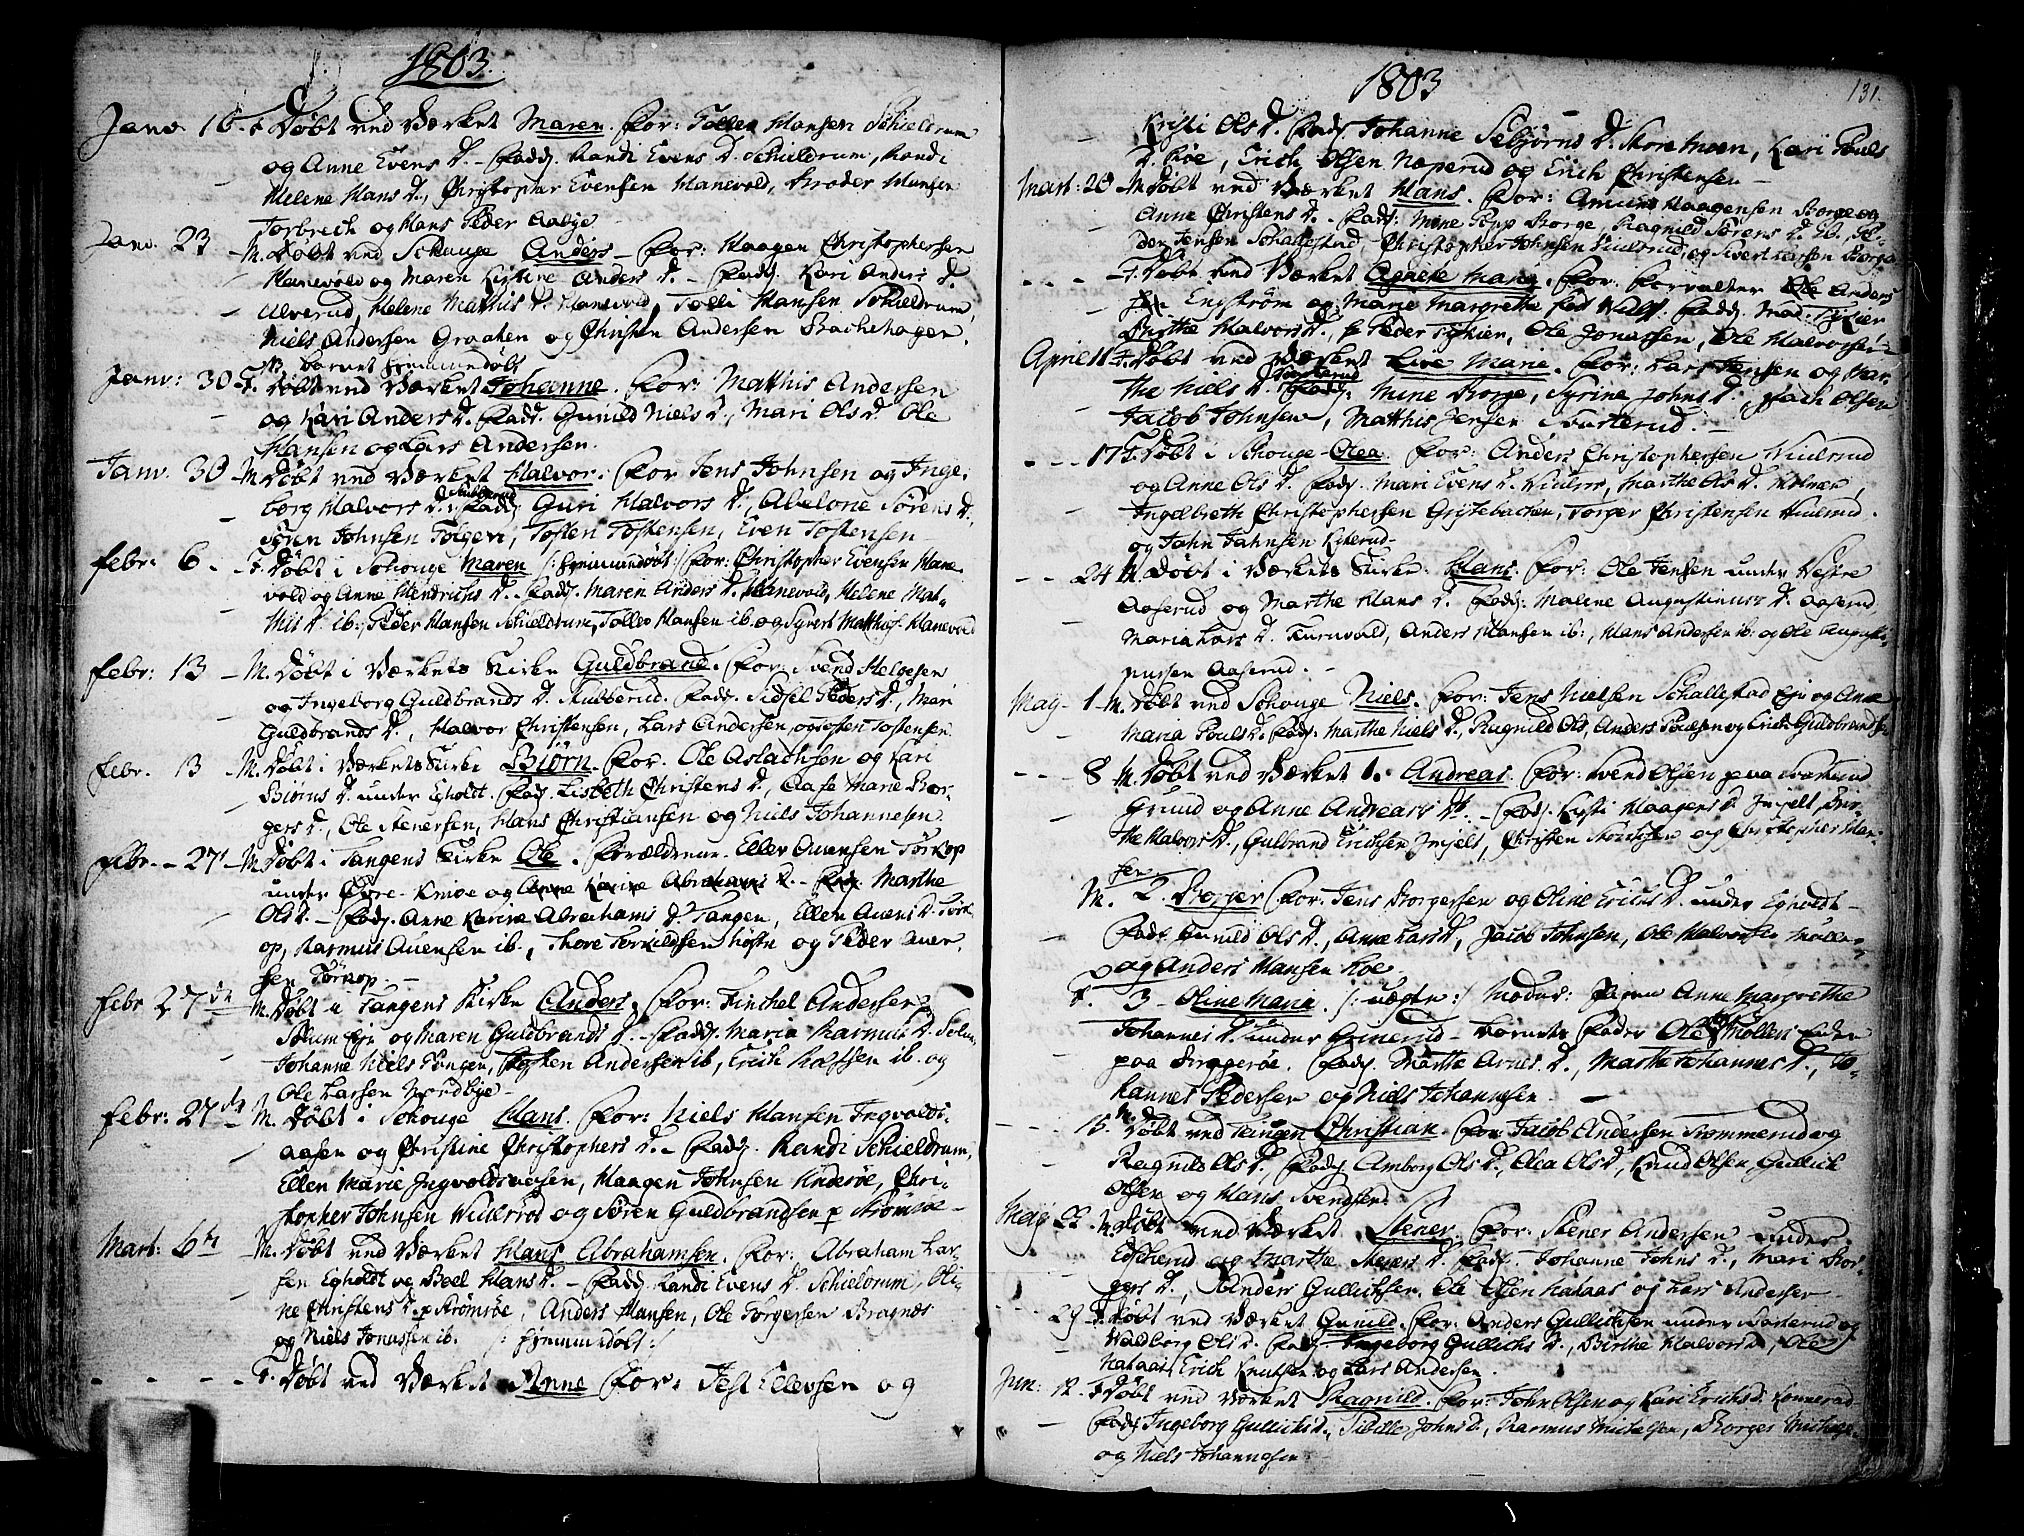 1803.
Janv. 16. F. Døbt ved Værket Maren. For: Tolles Hansen Schieldrum
og Anne Evens D. - Fadd. Randi Evens D. Schieldrum, Randi
Helene Hans D., Christopher Evensen Hanevold, Broder Hansen
Torbrech og Hans Peder Aabye
Janv. 23 - M. Døbt ved Schouge Anders - For: Haagen Christophersen
Hanevold og Maren Kistine Anders D. - Fadd. Kari Anders D.
Ulverud, Helene Matthis D. Hanevold, Tolli Hansen Schieldrum,
Niels Andersen Graaten og Christen Andersen Bachehagen.
NB barnet hjemmedøbt
Janv: 30 F. Døbt ved Værket Johanne. For: Matthis Andersen
og Kari Anders D. Fadd. Gunild Niels D., Mari Ols D. Ole
Hansen og Lars Andersen.
Janv. 30 - M. Døbt ved Værket Halvor. For Jens Johnsen og Inge-
borg Halvors D. Fadd. Guri Halvors D., Abelone Sørens D.
Søren Johnsen Tolgen, Tosten Tostensen, Even Tostensen
Febr: 6 - F. Døbt i Schouge Maren /: hjemmedøbt :/ For: Christopher Evensen Hane-
vold og Anne Hendrichs D. - Fadd. Maren Anders D. Hanevold, Helene Mat-
this D. ib:, Peder Hansen Schieldrum, Tolles Hansen ib. og Syvert Matthis. Hanevold
Febr: 13 - M. Døbt i Værkets Kirke Guldbrand. For: Svend Helgesen
og Ingeborg Guldbrands D. Kulberud. Fadd. Sidsel Peders D., Mari
Guldbrands D., Halvor Christensen, Lars Andersen, og Tosten Tostensen
Febr. 13 M. Døbt i Værkets Kirke Biørn. For. Ole Aslachsen og Kari
Biørns D. under Egholdt. Fad. Lisbeth Christens D., Aase Marie Bor-
gers D., Ole Stenersen, Hans Christiansen og Niels Johannesen
Febr. - 27 - M. Døbt i Tangens Kirke Ole. Forældrene. Ellev Auensen Tørkop
under Knive og Anne Karine Abrahams D. - Marthe
Ols D. - Fadd. Anne Karine Abrahams D. Tangen, Ellen Auens D. Tørk-
op, Rasmus Auensen ib., Thore Torkildsen Høstn og Peder Auen-
sen Tørkop. -
Febr 27de M. Døbt i Tangens Kirke Anders. For: Kinchel Andersen
Solum Eje og Maren Guldbrands D. - Fadd. Maria Rasmus D. Solum,
Johanne Niels Tangen, Andersen ib, Erich ib. og
Ole Larsen Nordbye -
Febr: 27de M. Døbt i Schouge Hans. For: Niels Hansen Ingvolds-
aasen og Christine Christophers D. - Fadd. Randi Schieldrum,
Ellen Marie Ingvoldsaasen, Haagen Johnsen Underøe, Chri-
stopher Johnsen Wiulsrød og Søren Guldbrandsen p Strømsøe -
Mart: 6te - M. Døbt ved Værket Hans Abrahamsen. For: Abraham Lar-
sen Egholdt og Boel Hans D. - Fadd. Randi Evens D. Schieldrum, Oli-
ne Christens D. p Strømsøe, Anders Hansen, Ole Torgersen Bragnæs
og Niels Jonassen ib. /: hjemmedøbt :/
- - - - F. Døbt ved Værket Anne For: Jest Ellevsen og
1803
131.
Kristi Ols D. Fadd. Johanne Sebjørns D. Store Moen, Kari Pouls
D. Røe, Erich Olsen Naperud og Erich Christensen -
Mart: 20 - M. Døbt ved Værket Hans. For: Haagensen Borge og
Anne Christens D. - Fadd: Mine Borge, Ragnild Sørens D. ib, Pe-
der Jensen Schallestad, Christopher Johnsen Wiulsrud, og Sivert Larsen Borge
- - - - F. Døbt ved Værket Agnete Marie. For: Forvalter Anders
Engstrøm og Marie Margrethe fød Wulf. Fadd. Mad:
Birthe Halvors D., Peder Ole Jonassen, Ole Halvorsen
April 11 F. Døbt ved Værket Live Marie. For: Lars Jensen og Mar-
the Niels D. Fadd: Mine Borge, Syrine Johns D., Olsen
Jacob Johnsen, Matthis Jensen Svarterud. -
- - - 17 F. Døbt i Schouge - Olea. For: Anders Christophersen Wiulsrud
og Anne Ols D. Fadd. Mari Evens D. Marthe Ols D.
Ingelbreth Christophersen Gristebachen, Torger Christensen Wiulsrud
og John Johnsen
- - 24 M. Døbt i Værkets Kirke. Hans. For: Ole Jensen under Vestre
Aaserud og Marthe Hans D. Fadd: Malene Augustinuss D. Aaserud
Maria Lars D. Anders Hansen ib:, Hans Andersen ib: og Ole Augusti-
nussen Aaserud. -
May - 1 - M. Døbt ved Schouge Niels. For: Jens Nielsen Schallestad Eje og Anne
Maria Pouls D. Fadd. Marthe Niels D., Ragnild Ols, Anders Poulsen og Erich Guldbrands.
- - - 8 M. Døbt ved Værket 1. Andreas. For: Svend Olsen paa
Grund og Anne Andreass D. - Fadd. Kisti Haagens D. Bir-
the Halvors D., Gulbrand Erichsen Christen og Christopher Han-
sen.
M. 2. Borger For: Jens Borgersen og Oline Erichs D. under Egholdt -
Fadd. Gunild Ols D., Anne Lars D., Jacob Johnsen, Ole Halvorsen
og Anders Hansen Røe.
F. 3 - Oline Maria. /: uægte :/ Moder: Pigen Anne Margrethe
Johannes D. under - Barnets Fader Ole
paa Bragerøe. Fadd. Marthe Arnes D., Marthe Johannes D., Jo-
hannes Pedersen og Niels Johannsen. -
- - - 15 M. Døbt ved Tangen Christian. For Jacob Andersen Strømmerud og
Ragnild Ols D., Fadd Amborg Ols D., Olea Ols D., Knud Olsen, Gullich
Olsen og Hans Svendsen.
May 22 M. Døbt ved Værket Stener. For: Stener Andersen under
og Marthe Steners D. Fadd. Johanne Johns D., Mari Bor-
gers D., Anders Gullichsen. Ole Olsen Hataas og Lars Andersen -
29 F. Døbt ved Værket Gunild. For: Anders Gullichsen under og
Waldborg Ols D. Fadd. Ingeborg Gullichs D., Birthe Halvors D., Ole
Hataas, Erich Knutsen og Lars Andersen.
Jun: 12. F. Døbt ved Værket Ragnild. For: John Olsen og Kari Erichs D. Konnerud
Fadd Ingeborg Gullichs D., Sibille Johns D., Rasmus Michelsen, Borger
og Niels Johannesen